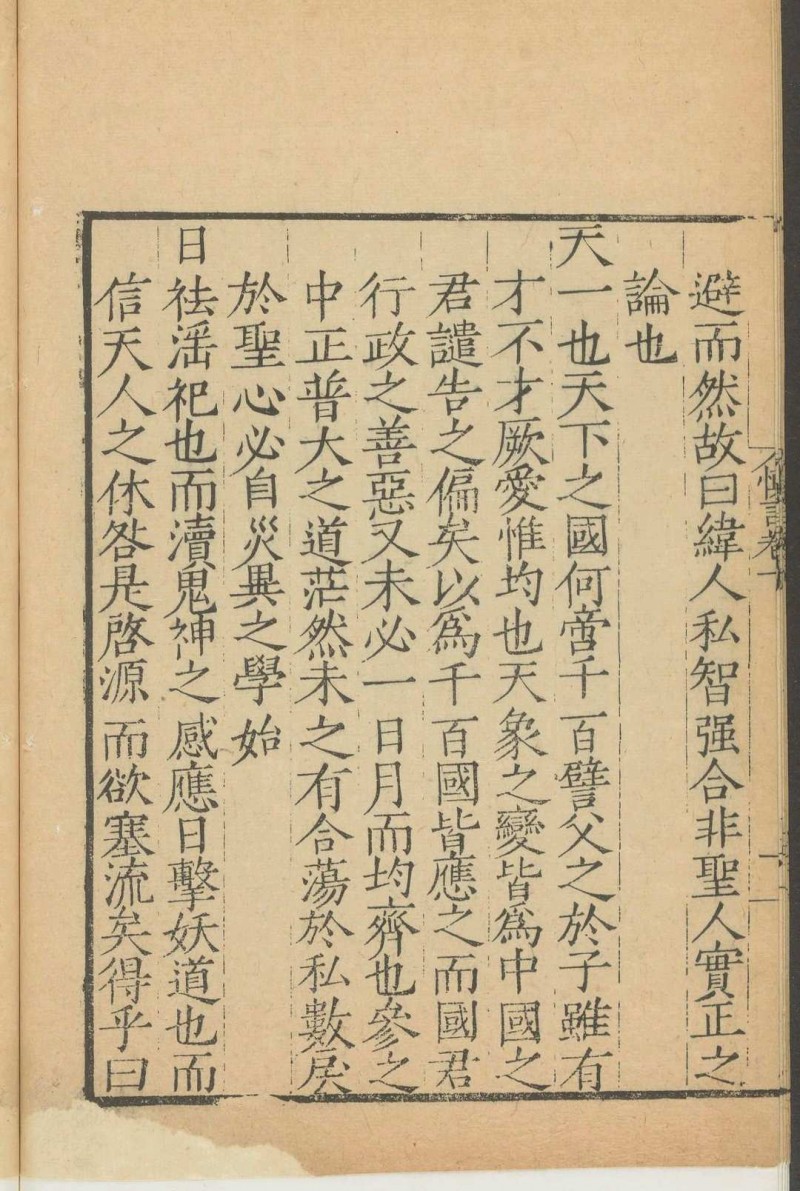 避而然故曰緯人私智强合非聖人實正之
論也
天一也天下之國何啻千百譬父之於子雖有
才不才厥愛惟均也天象之變皆爲中國之
君譴告之偏矣以爲千百國皆應之而國君
行政之善惡又未必一日月而均齊也參之
中正普大之道茫然未之有合蕩於私數戾
於聖心必自災異之學始
日祛滛祀也而瀆鬼神之感應日擊妖道也而
信天人之休咎是啓源而欲塞流矣得乎曰